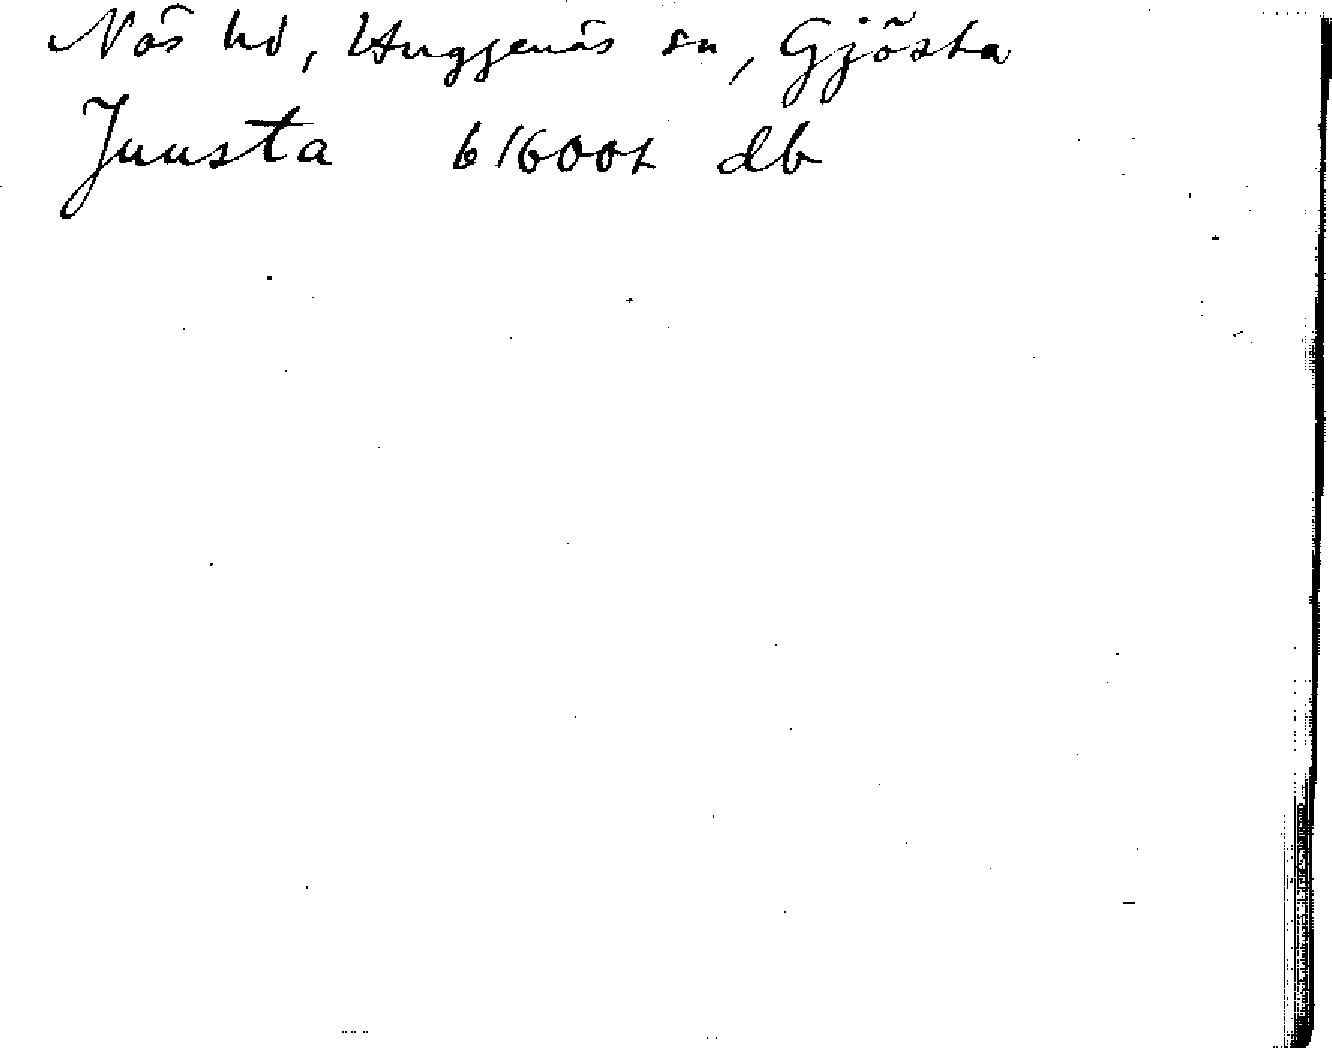 Näs hd, Huggenäs sn, Gjösta
Juusta b 1600t db